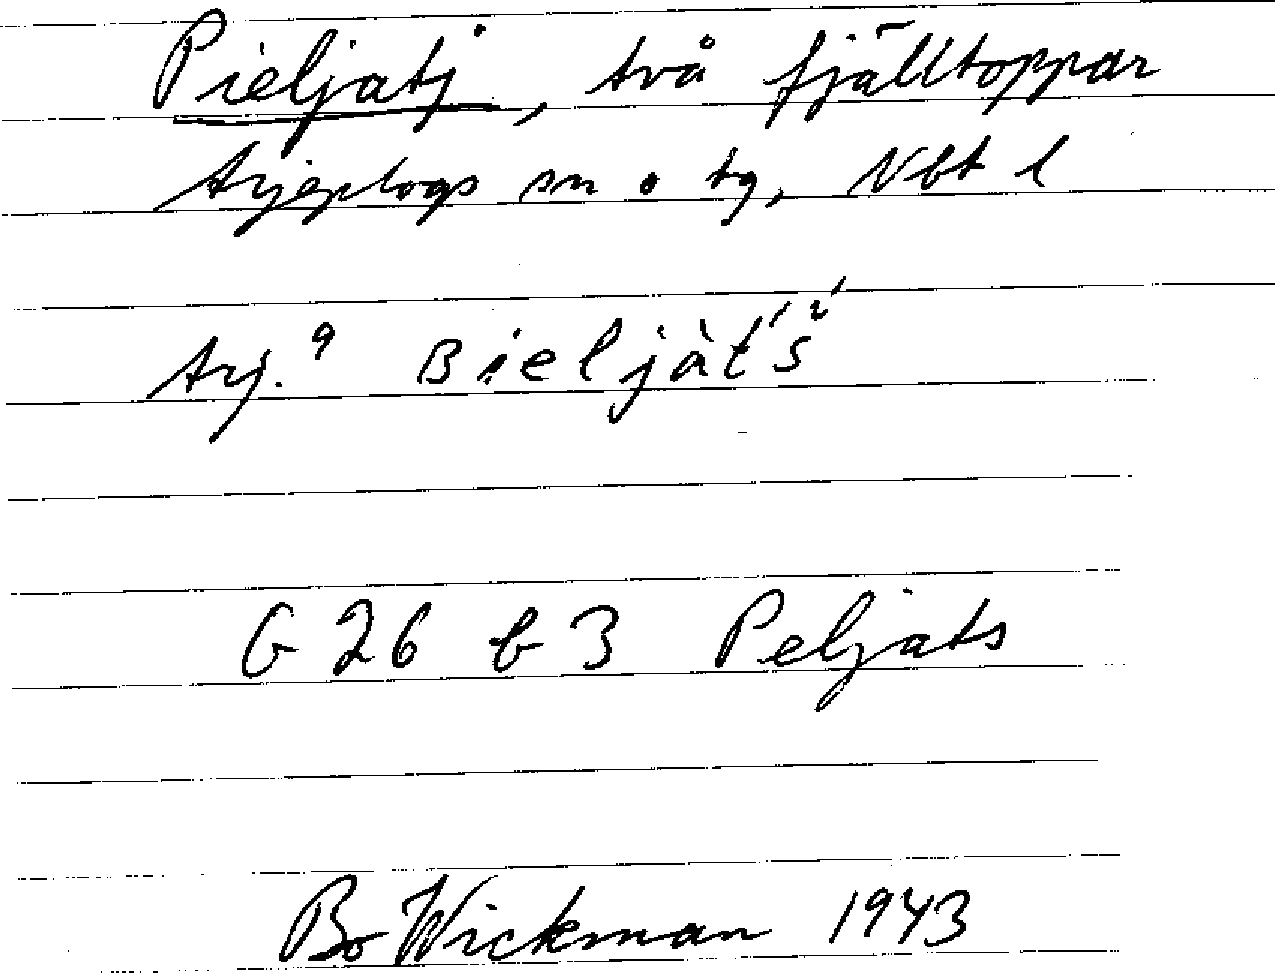 Pieljatj, två fjälltoppar
Arjeplogs sn o tg, Nbt l
Arj. 9 Bieljàt́'š́
G 26 b 3 Peljats
Bo Wickman 1943